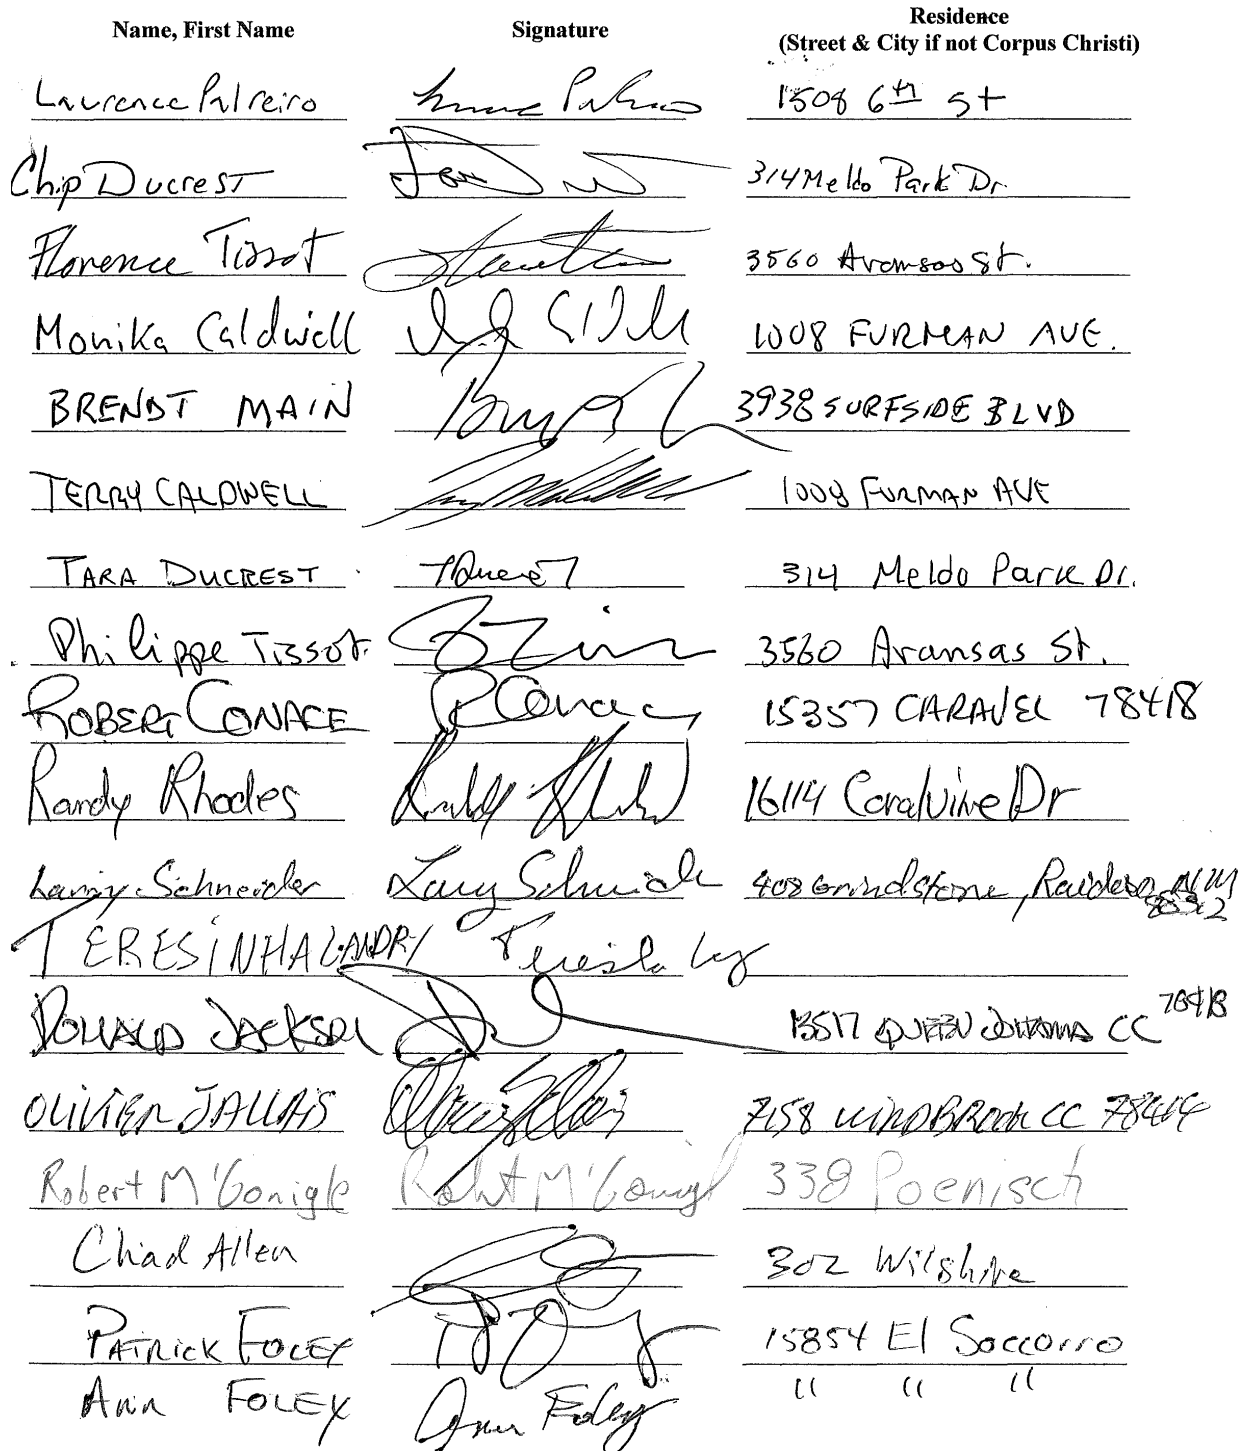 Name, First Name Signature Residence
(Street & City if not Corpus Christi)
Laurence Palreiro 1508 6th St
Chip Ducrest 314 Meldo Park Dr.
Florence Tissot 3560 Aransas St.
Monika Caldwell 1008 FURMAN AVE.
BRENDT MAIN 3938 SURFSIDE BLVD
TERRY CALDWELL 1008 FURMAN AVE
TARA DUCREST TDucrest 314 Meldo Park Dr.
Philippe Tissot. 3560 Aransas St.
ROBERT CONACE R Conace 15357 CARAVEL 78418
Randy Rhodes 16114 Coralvine Dr
Larry Schneider Larry Schneide 402 Grindstone, NM
TERESINHA LANDRY
DONALD JACKSON 13517 QUEEN JOHANNA CC 78418
OLIVIER JALLAIS 7158 WINDBROOK CC 78414
Robert M'Gonigle Robert M'Gonigl 338 Poenisch
Chad Allen 302 Wilshire
PATRICK FOLEY 15854 El Soccorro
Ann FOLEY Ann Foley " " "